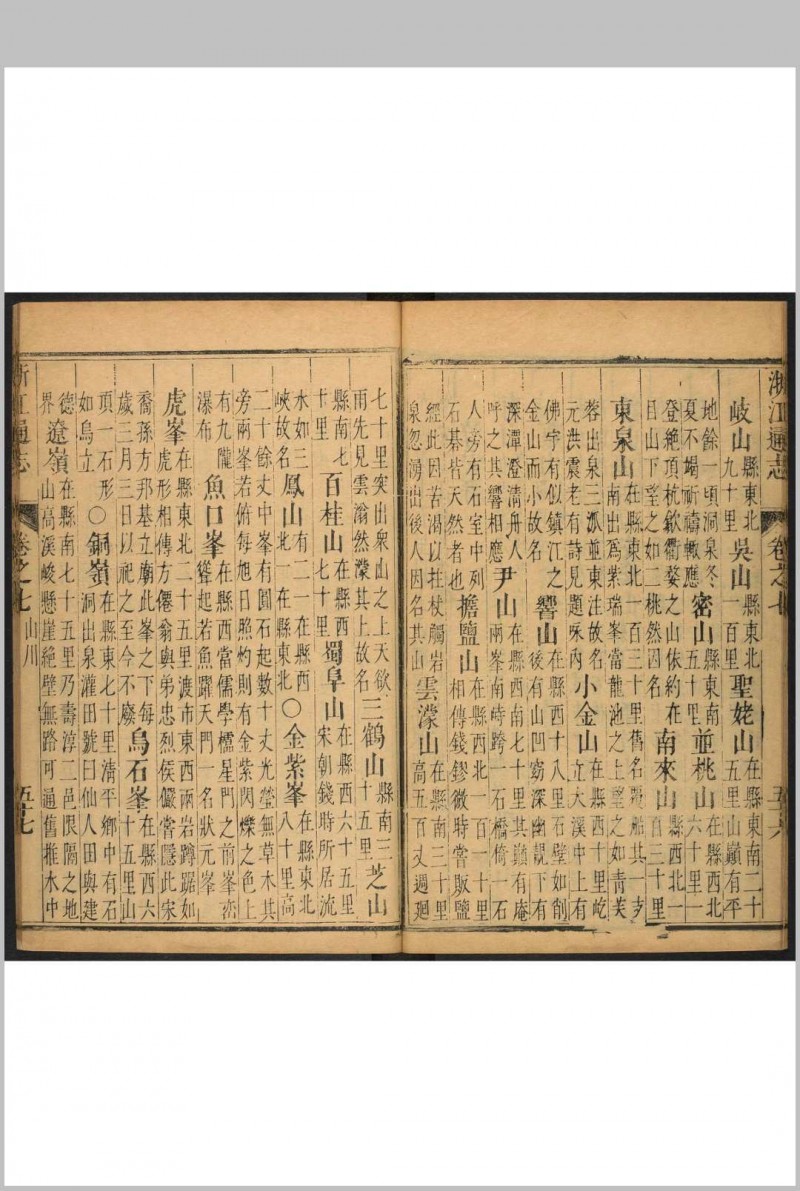 浙江通志 卷之七 五十六
岐山縣東北九十里吳山縣東北一百里聖姥山在縣東南二十五里山巔有平
地餘一頃洞泉冬夏不竭祈禱輒應密山縣東南五十里並桃山在縣西北六十里一
登絶頂杭歙衢婺之山依約在目山下望之如二桃然因名南來山縣西北一百三十里
東泉山在縣東北一百三十里舊名戰船其一支南出爲紫瑞峯當龍池之上望之如靑芙
蓉出泉三派並東注故名元洪震老有詩見題咏內小金山在縣西十里屹立大溪中上有
佛宇有似鎮江之金山而小故名響山在縣西十八里石壁如削後有山凹窈深幽覷下有
深潭澄清舟人呼之其響相應尹山在縣西南七十里其巔有庵兩峯南峙跨一石橋倚一石
人旁有石室中列石棊皆天然者也擔鹽山在縣西北一百一十里相傳錢鏐微時常販鹽
經此因苦渴以拄杖觸岩泉忽湧出後人因名其山雲濛山在縣南三十里高五百丈週廻
七十里突出衆山之上天欲雨先見雲滃然濛其上故名三鶴山縣南三十五里芝山
縣南七十里百桂山在縣西七十里蜀阜山在縣西六十五里宋朝錢時所居流
水如三峽故名鳳山有二一在縣西北一在縣東北○金紫峯在縣東北八十里高
二十餘丈中峯有圓石起數十丈光瑩無草木其旁兩峯若俯每旭日照灼則有金紫閃爍之色上
有九隴瀑布魚口峯在縣西當儒學櫺星門之前峯巒聳起若魚躍天門一名狀元峯
虎峯在縣東北二十五里渡市東西兩岩蹲踞如虎形相傳方僊翁與弟忠烈侯儼嘗隱此宋
喬孫方邦基立廟此峯之下每歲三月三日以祀之至今不廢烏石峯在縣西六十五里山
頂一石形如烏立○銅嶺在縣東七十里清平鄉中有石洞出泉灌田號曰仙人田與建
德界遼嶺在縣南七十五里乃壽淳二邑限隔之地山高溪峻懸崖絶壁無路可通舊推水中
浙江通志 卷之七 山川 五十七